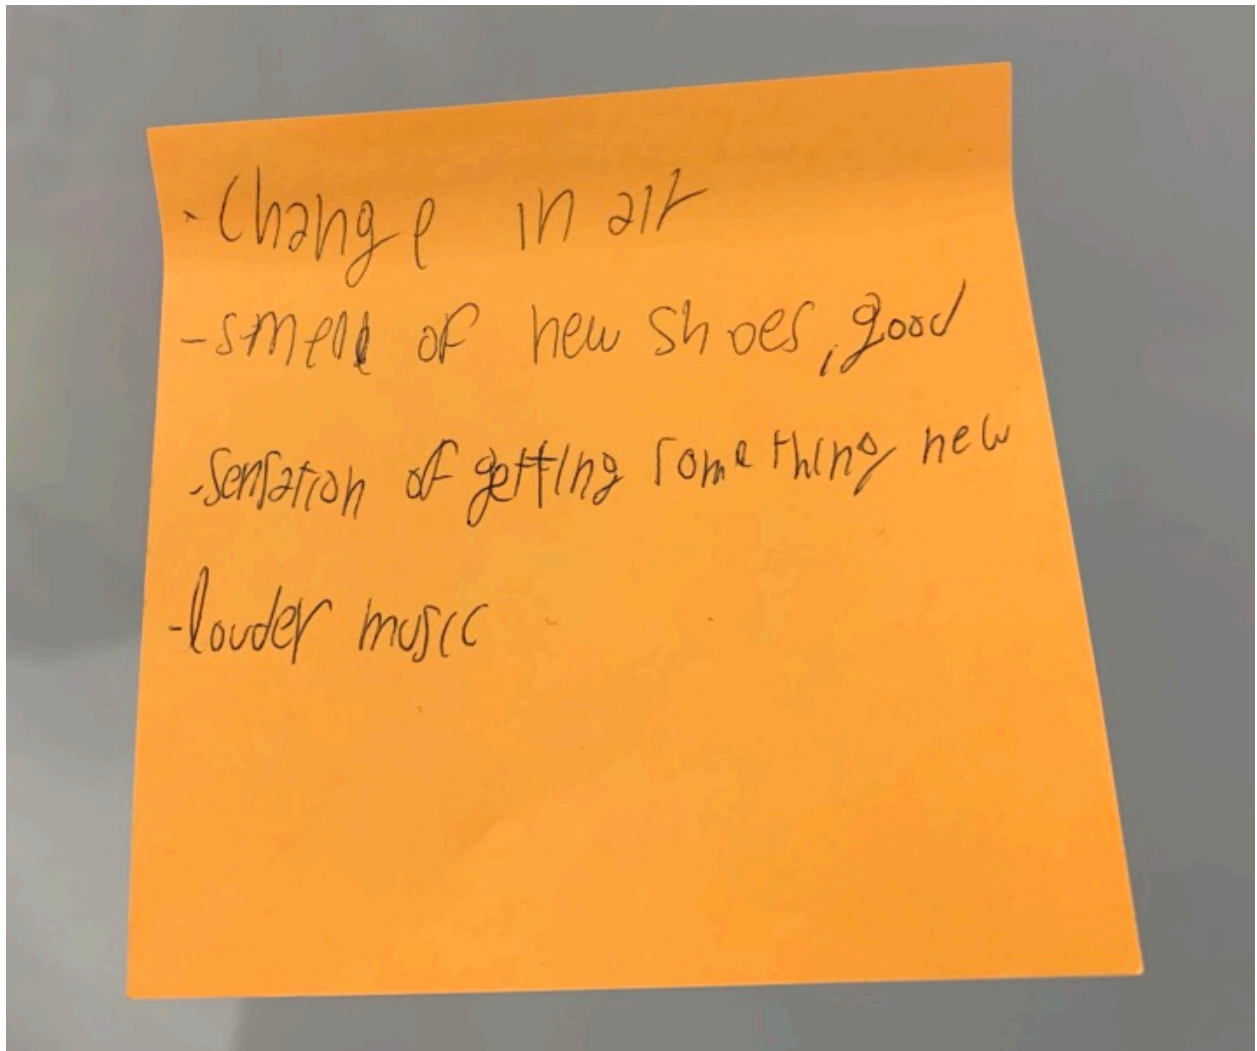 - Change in air
- smell of new shoes, good
- sensation of getting something new
- louder music